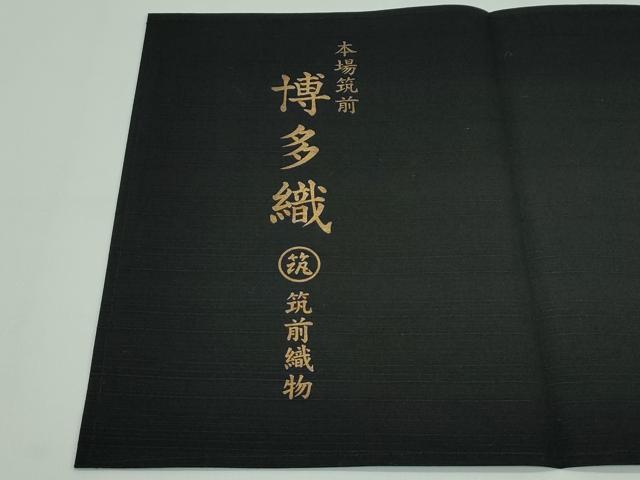 本場筑前
博多織
筑
筑前織物